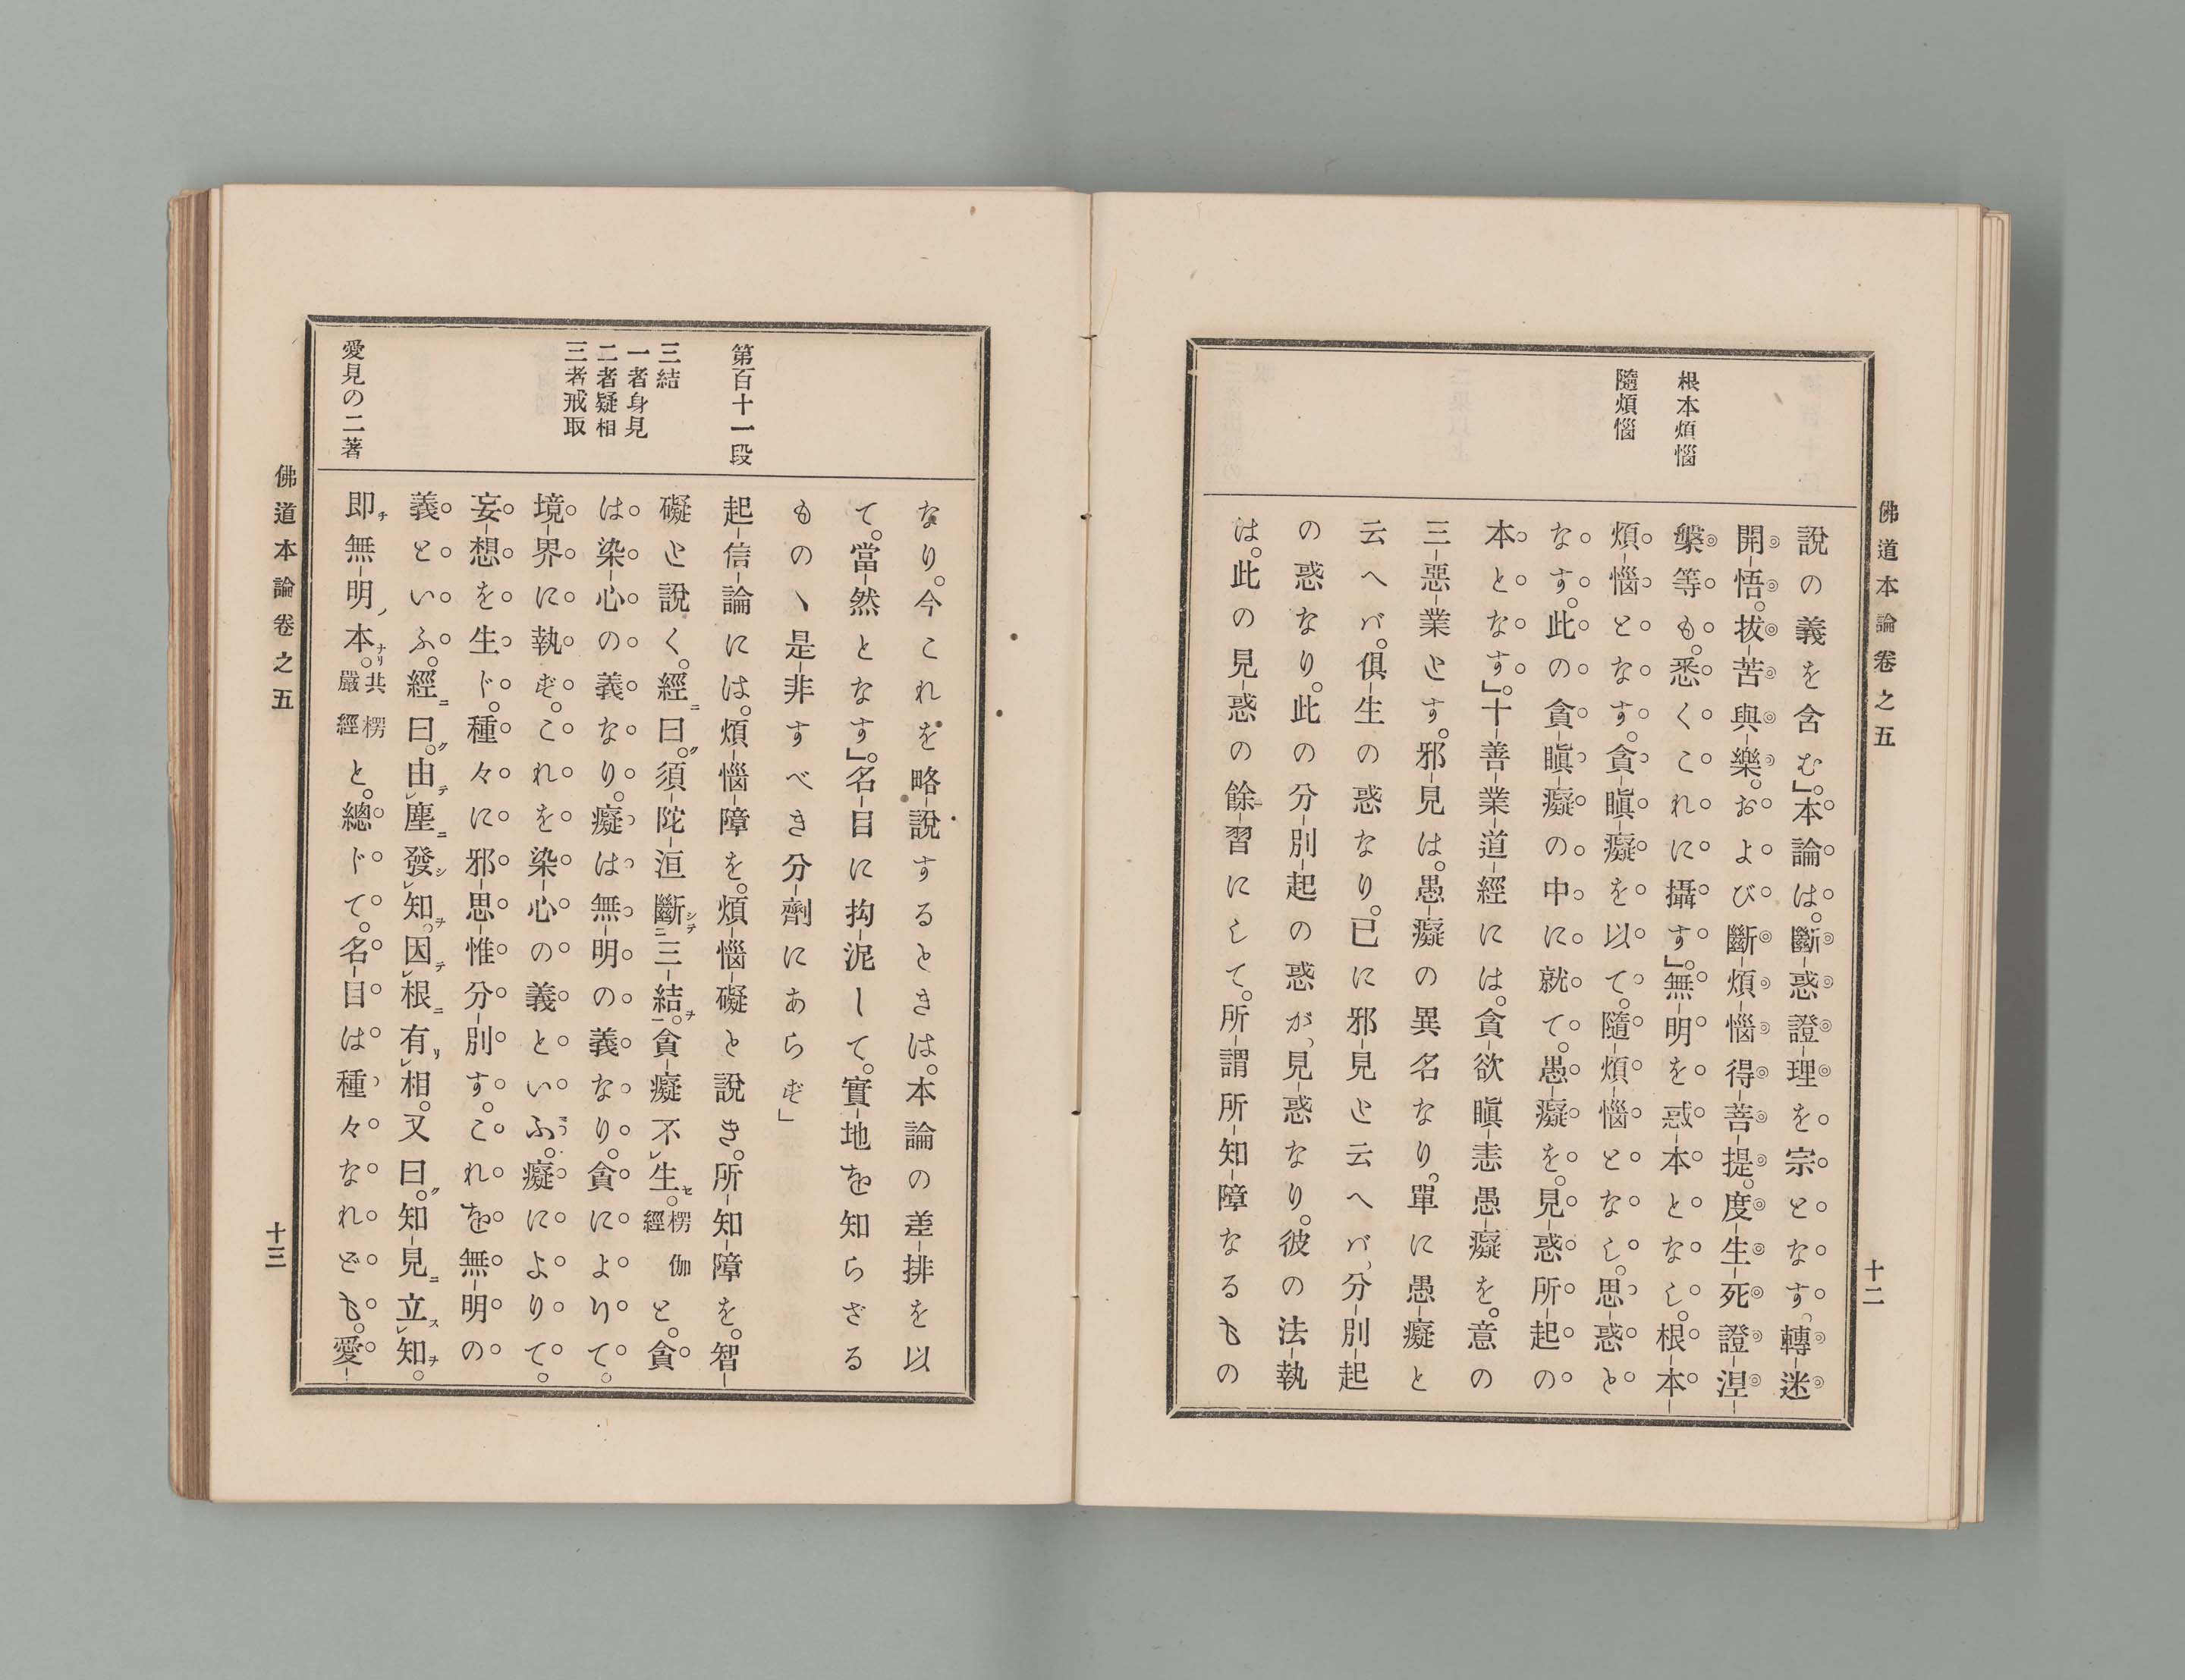 佛道本論卷之五
十二
根本煩惱
隨煩惱
說の義を含む。」本論は。斷惑證理を宗となす。轉迷
開悟。拔苦與樂。および斷煩惱得菩提。度生死證涅
槃等も。悉くこれに攝す。」無明を惑本となし。根本
煩惱となす。貪瞋癡を以て。隨煩惱となし。思惑と
なす。此の貪瞋癡の中に就て。愚癡を。見惑所起の
本となす。」十善業道經には。貪欲瞋恚愚癡を。意の
三惡業とす。邪見は。愚癡の異名なり。單に愚癡と
云へバ。俱生の惑なり。已に邪見と云へバ、分別起
の惑なり。此の分別起の惑が、見惑なり。彼の法執
は。此の見惑の餘習にして。所謂所知障なるもの
第百十一段
三結
一者身見
二者疑相
三者戒取
愛見の二著
なり。今これを略說するときは。本論の差排を以
て。當然となす」。名目に拘泥して。實地を知らざる
もの丶是非すべき分劑にあらず」
起信論には。煩惱障を。煩惱礙と說き。所知障を。智
礙と說く。經ニ曰ク。須陀洹斷シテ二三結ヲ一。貪癡不レ生セ。楞伽經と。貪
は染心の義なり。癡は無明の義なり。貪によりて。
境界に執ず。これを染心の義といふ。癡によりて。
妄想を生ド。種々に邪思惟分別す。これを無明の
義といふ。經ニ曰ク。由テレ塵ニ發シレ知ヲ。因テレ根ニ有リレ相。又曰ク。知見ニ立スレ知ヲ。
即チ無明ノ本ナリ。共楞嚴經と。總ドて。名目は種々なれども。愛
佛道本論卷之五
十三